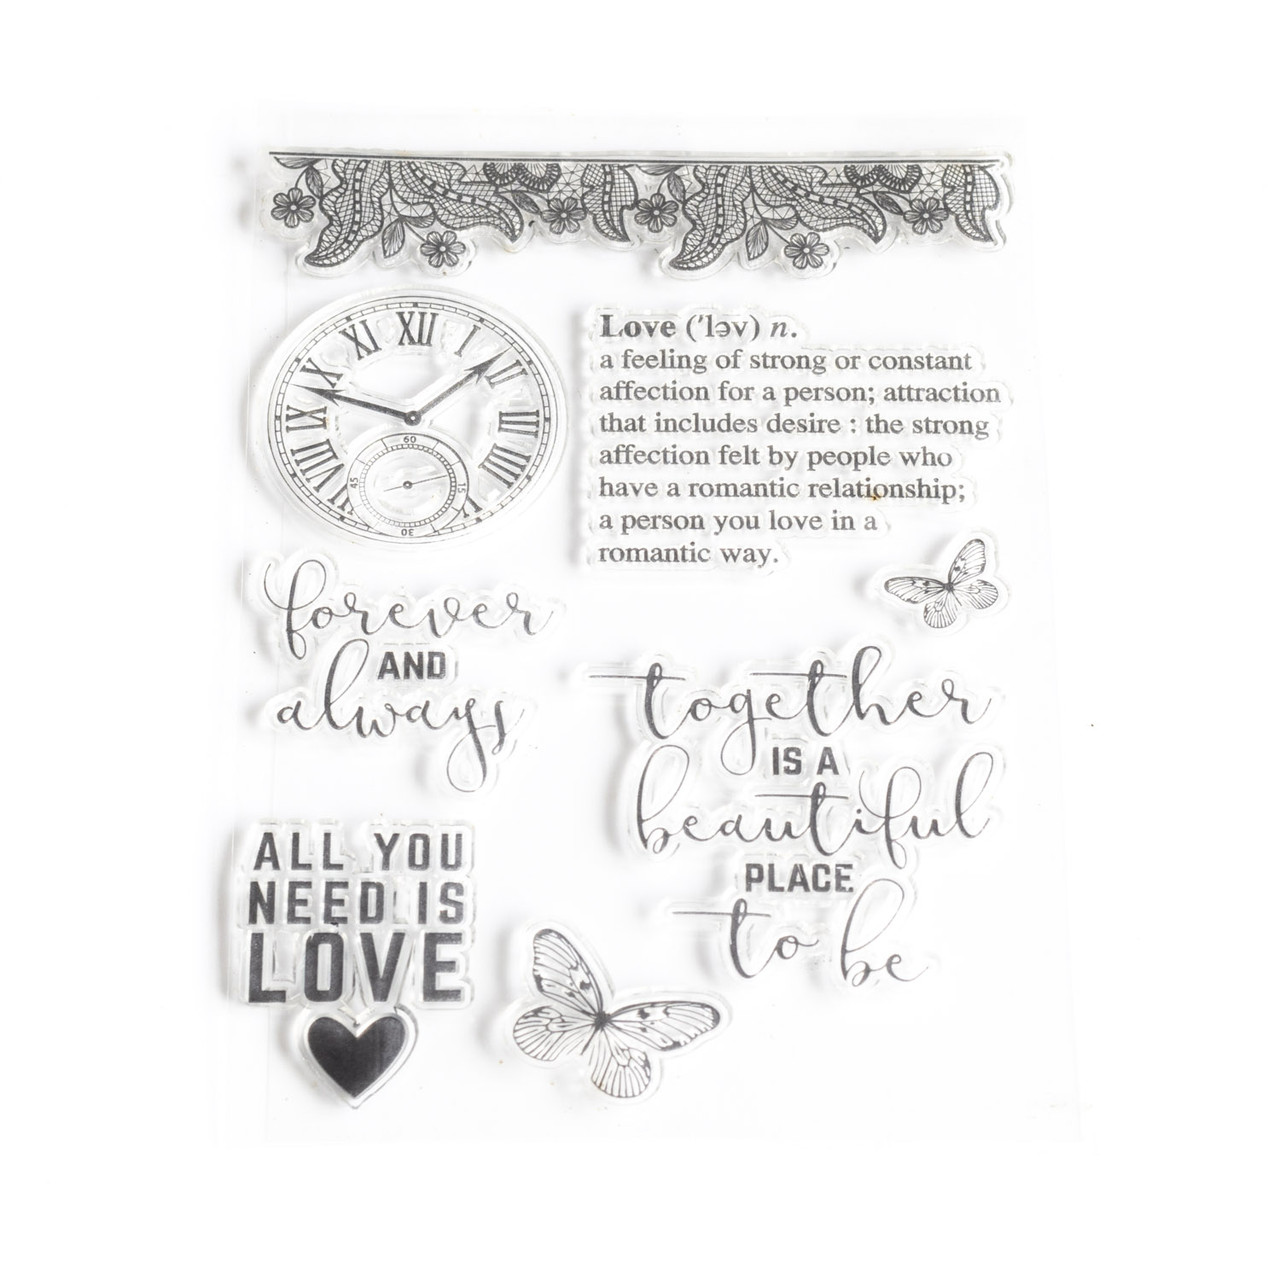 XII
I
II
III
IIII
V
VII
VIII
IX
X
XI
60
15
30
45
Love ('ləv) n.
a feeling of strong or constant
affection for a person; attraction
that includes desire : the strong
affection felt by people who
have a romantic relationship;
a person you love in a
romantic way.
forever
AND
always
together
IS A
beautiful
PLACE
to be
ALL YOU
NEED IS
LOVE